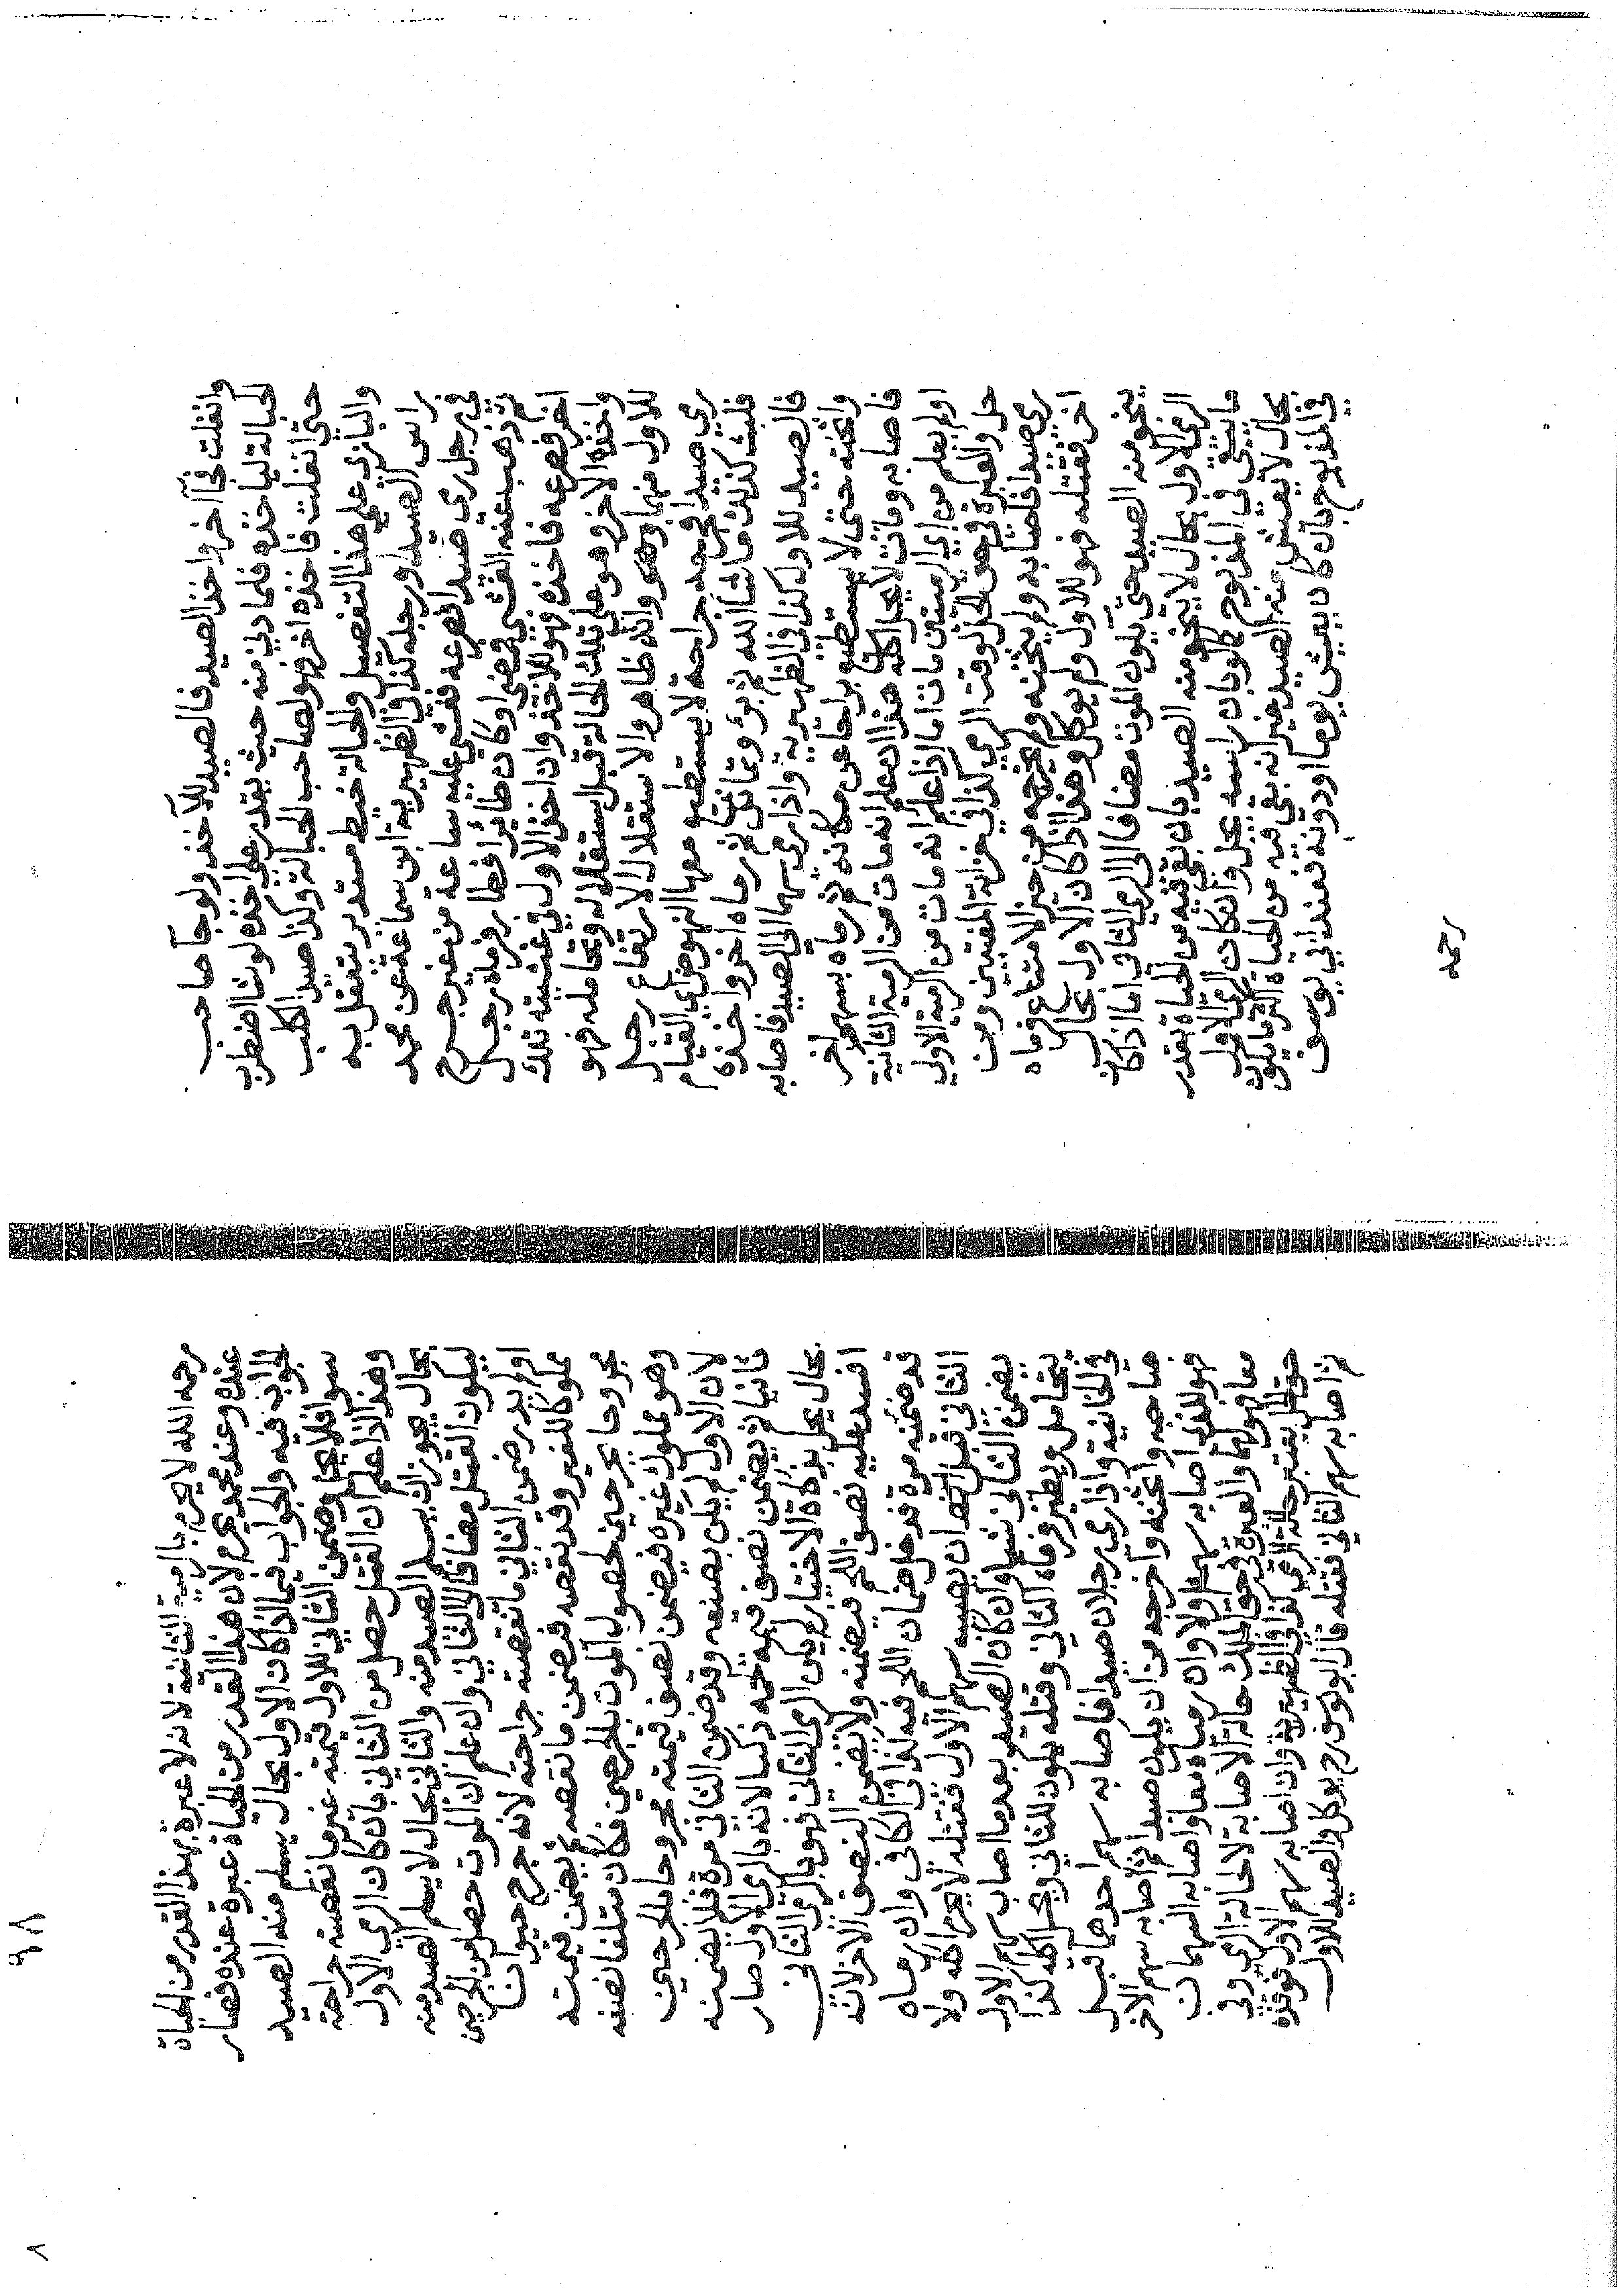 وانفلت فجا آخر واخذ الصيد فالصيد للآخذ ولوجآ صاحب
الحبالة لياخذه فلما دنى منه حيث يقدر على اخذه لوشا اضطرب
حتى انفلت فاخذه اخر فهو لصاحب الحبالة وكذا صيد الكلب
والبازي على هذا التفصيل والحبالة خيط مستدير يتعقل به
راس الصيد او رجله كذا في الظهيرية ابن سماعة عن محمد
في رجل رمى صيدا فصرعه فغشي عليه ساعة من غير جرح
ثم ذهب عنه الغشي فمضى اوكان طائرا فطار فرماه رجل
اخر فصرعه فاخذه فهو للآخذ وان اخذ الاول في غشيته تلك
واخذه الاخر وهو على تلك الحالة قبل استقلاله وتحامله فهو
للاول منهما وهو والله ظاهر والاستقلال الارتفاع رجل
رمى صيدا فجرحه جراحة لا يستطيع معها النهوض اي القيام
فلبث كذلك ما شآ الله ثم برؤ وتماثل ثم رماه اخر واخذه
فالصيد للاول كذا في الظهيرية واذا رمى سهما الى الصيد فاصابه
واثخنه حتى لا يستطيع براحا عن مكانه ثم رماه بسهم اخر
فاصابه ومات لايحل اكله هذا ان علم انه مات من الرمية الثانية
اولم يعلم من اي الرميتين مات اما اذا علم انه مات من الرمية الاولى
حل والعبرة في حق الحل لوقت الرمي كذا في خزانة المفتين ومن
رمى صيدا فاصابه ولم يثخنه ولم يخرجه من حيز الامتناع فرماه
اخر فقتله فهو للاول ولم يوكل وهذا اذا كان الاول بحال
ينجو منه الصيد حتى يكون الموت مضافا الى الرمي الثاني اما اذا كان
الرمي الاول بحال لا ينجو منه الصيد بان بقي فيه من الحياة بقدر
ما يبقى في المذبوح كما لو بان راسه يحل وان كان الرمي الاول
بحال لا يعيش منه الصيد غير انه بقي فيه من الحياة اكثر ما يكون
في المذبوح بان كان يعيش يوما او دونه فعند ابي يوسف
رحمه
٩٨
رحمه الله لا يحرم بالرمية الثانية لانه لا عبرة بهذا القدر من الحياة
عنده وعند محمد يحرم لان هذا القدر من الحياة عبرة عنده فصار
الجواب فيه والجواب فيما اذا كان الاول بحال يسلم منه الصيد
سوا فلا يحل وضمن الثاني للاول قيمته غير ما نقصته جراحته
وهذا اذا علم ان القتل حصل من الثاني بان كان الرمي الاول
بحال يجوز ان يسلم الصيد منه والثاني بحال لا يسلم الصيد منه
ليكون القتل مضافا الى الثاني وان علم ان الموت حصل من الجرحين
اولم يدر ضمن الثاني ما نقصته جراحته لانه جرح حيوانا
مملوكا للغير وقد نقصه فيضمن ما نقصه ثم يضمن قيمته
مجروحا بجرحين لحصول الموت بالجرحين فكان متلفا نصفه
وهو مملوك غيره فيضمن نصف قيمته مجروحا بالجرحين
لان الاول لم يكن بصنعه وقد ضمن الثاني مرة فلا يضمنه
ثانيا ثم يضمن نصف قيمة لحمه ذكيا لانه بالرمي الاول صار
بحال يحل بذكاة الاختيار لو لم يكن الرمي الثاني فهو بالرمي الثاني
افسد عليه نصف اللحم فيضمنه ولا يضمن النصف الاخر لانه
قد ضمنه مرة فدخل ضمان اللحم فيه كذا في الكافي وان رماه
الثاني قبل ان يصيبه سهم الاول فقتله لا يحرم اكله ولا
يضمن الثاني شيا وان كان الصيد بعد ما اصاب سهم الاول
يتحامل ويطير فرماه الثاني وقتله يكون للثاني ويحل اكله كذا
في الخانية واذا رمى رجلان صيدا فاصابه سهم احدهما قبل
صاحبه واثخنه واخرجه من ان يكون صيدا ثم اصابه سهم الاخر
فهو للذي اصابه سهم اولا وان رمياه معا واصابه السهمان
معا فهو لهما والعبرة في حق الملك حالة الاصابة لا حالة الرمي وفي
حق الحل يعتبر حالة الرمي كذا في الظهيرية وان اصابه سهم الاول فوقذه
ثم اصابه سهم الثاني فقتله قال ابو يوسف رح يوكل والصيد للاول